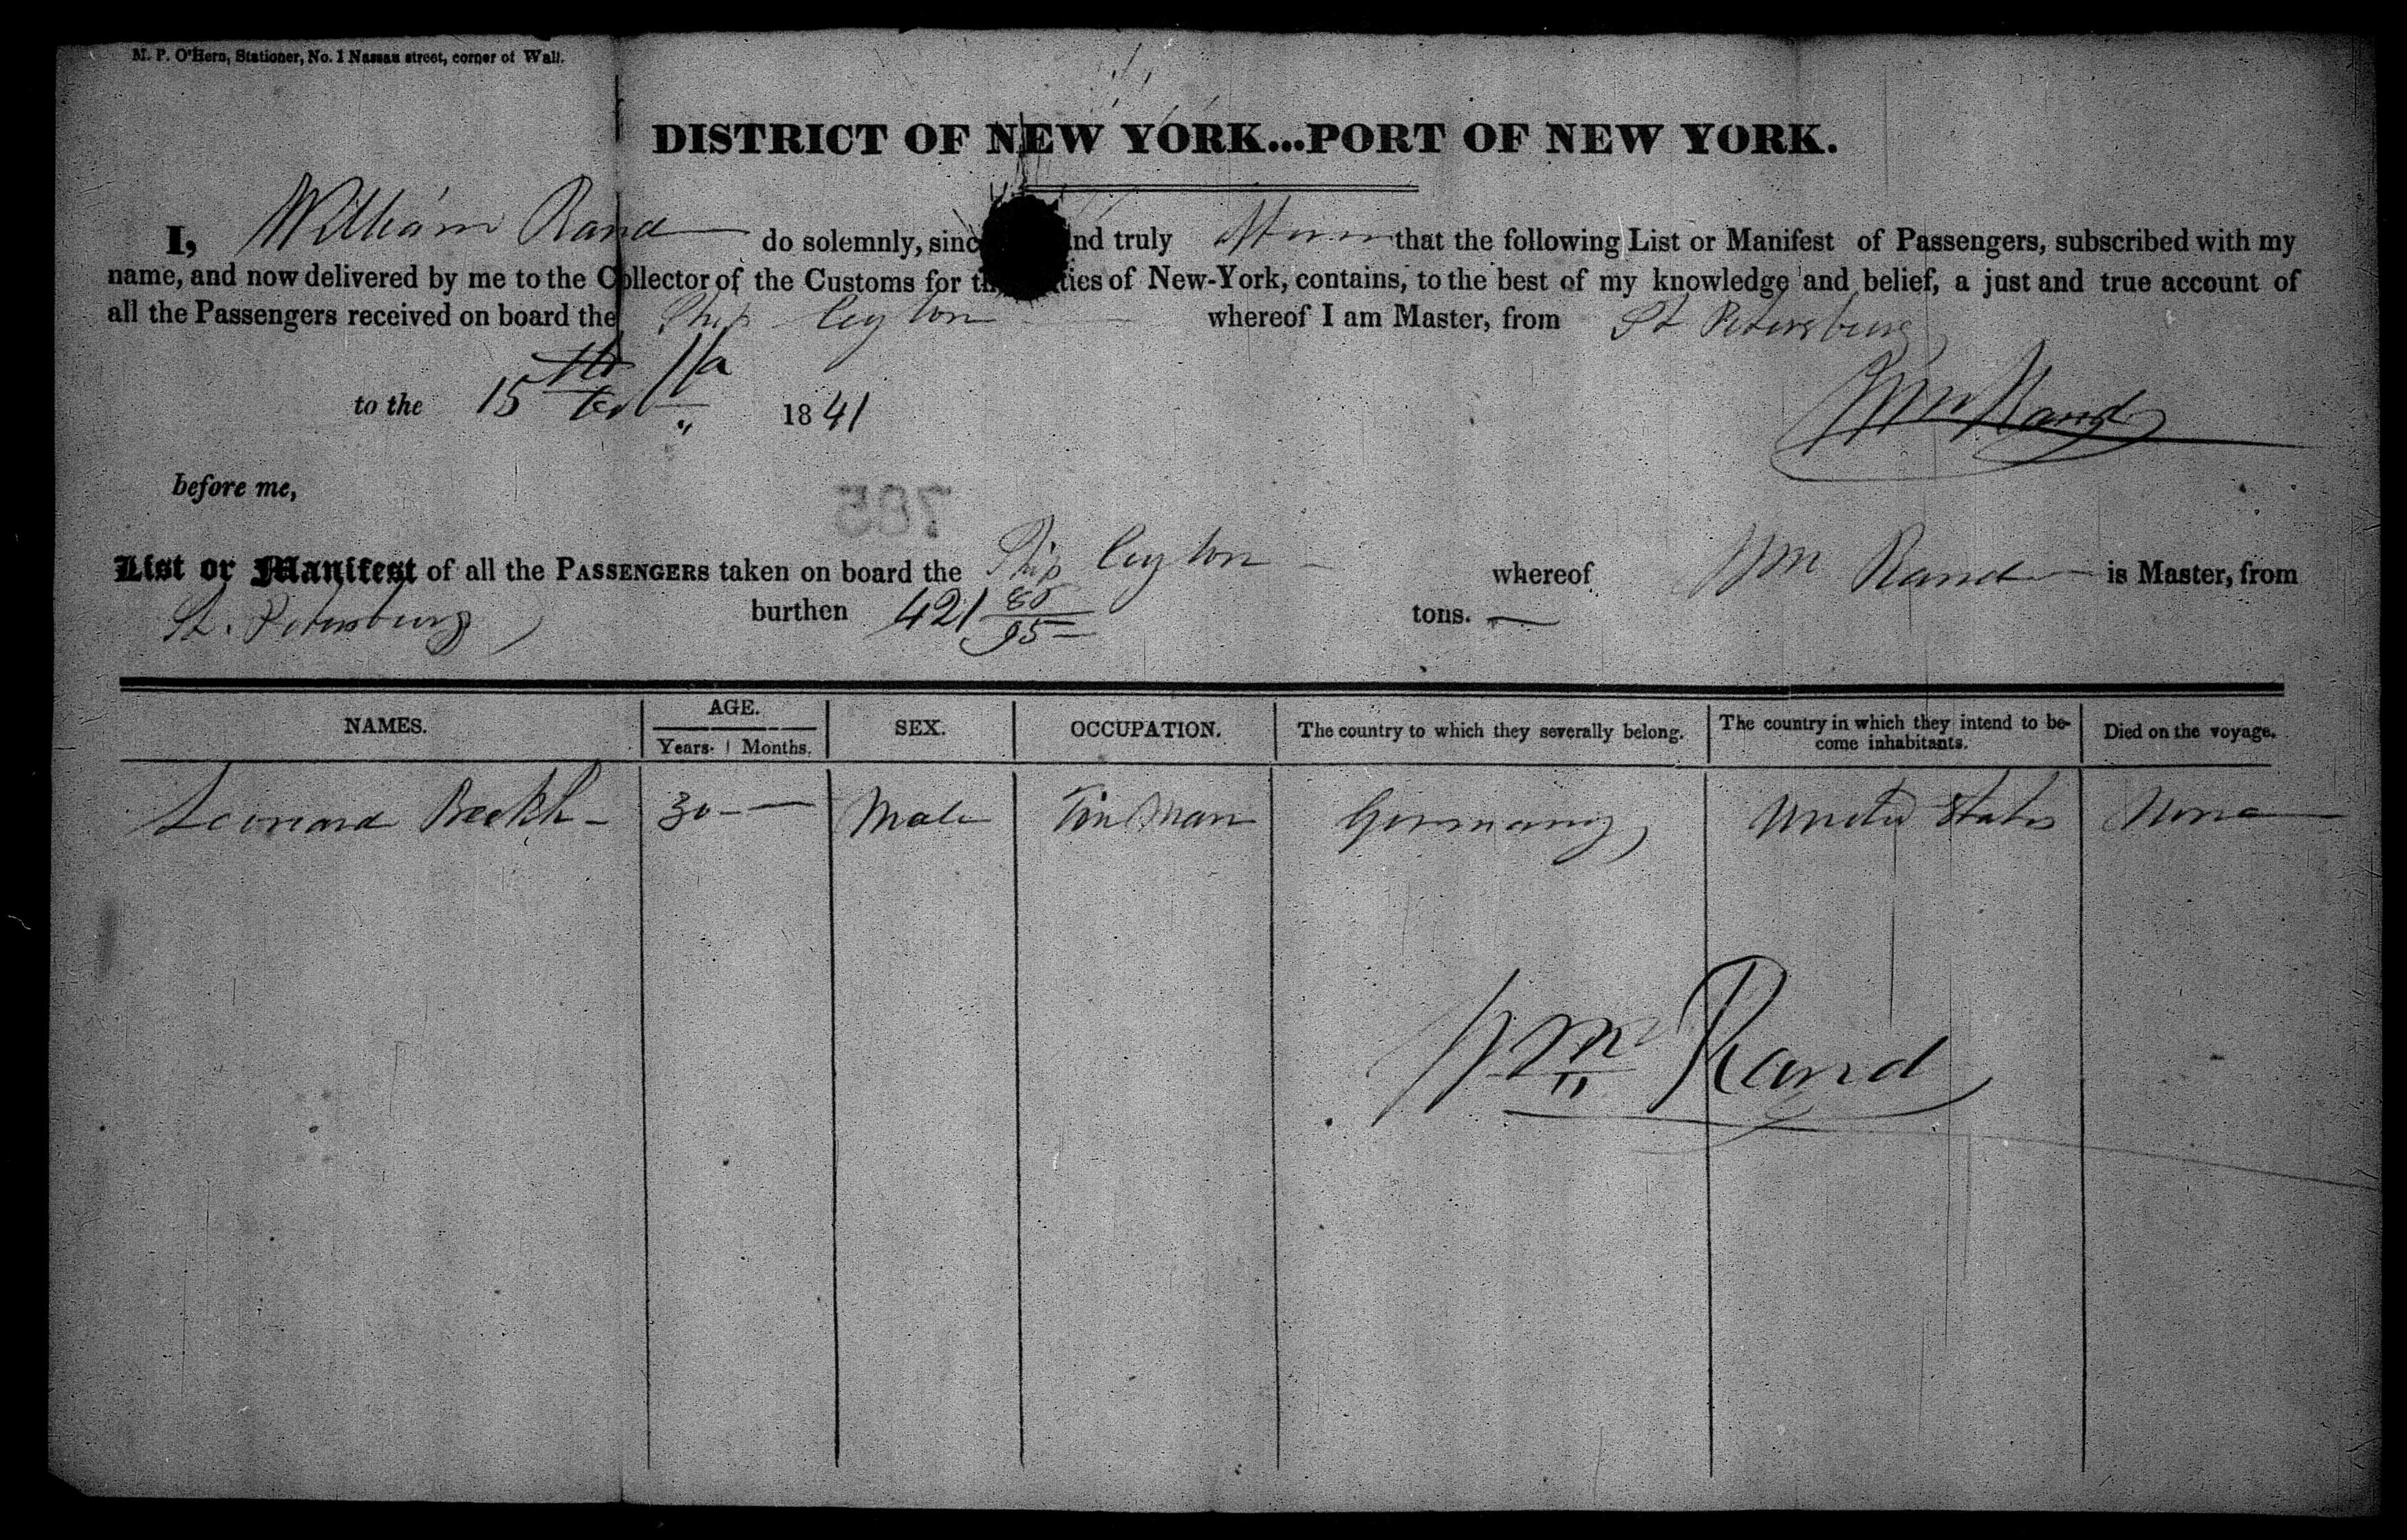 M. P. O'Hern, Stationer, No. 1 Nassau street, corner of Wall.
DISTRICT OF NEW YORK...PORT OF NEW YORK.
I, William Rand do solemnly, sinc nd truly that the following List or Manifest of Passengers, subscribed with my
name, and now delivered by me to the Collector of the Customs for th ties of New-York, contains, to the best of my knowledge and belief, a just and true account of
all the Passengers received on board the Ship Ceylon whereof I am Master, from St Petersburg
to the 15th 1841
Wm Rand
before me,
785
List or Manifest of all the PASSENGERS taken on board the Ship Ceylon whereof Wm Rand is Master, from
St. Petersburg burthen 421 85/95 tons.
NAMES. AGE. SEX. OCCUPATION. The country to which they severally belong. The country in which they intend to be-come inhabitants. Died on the voyage.
Years. Months.
Leonard 30 Male Tin Man Germany United States None
Wm Rand